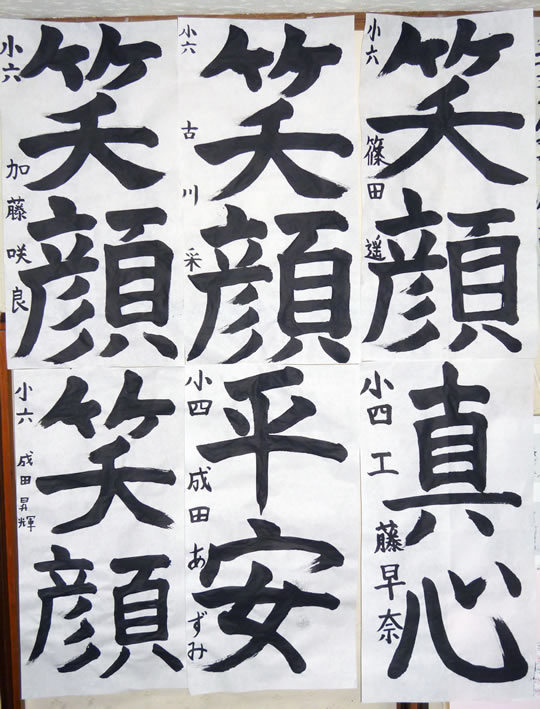 笑顔
小六 加藤咲良
笑顔
小六 古川采
笑顔
小六 篠田遥
笑顔
小六 成田昇輝
平安
小四 成田あずみ
真心
小四 工藤早奈